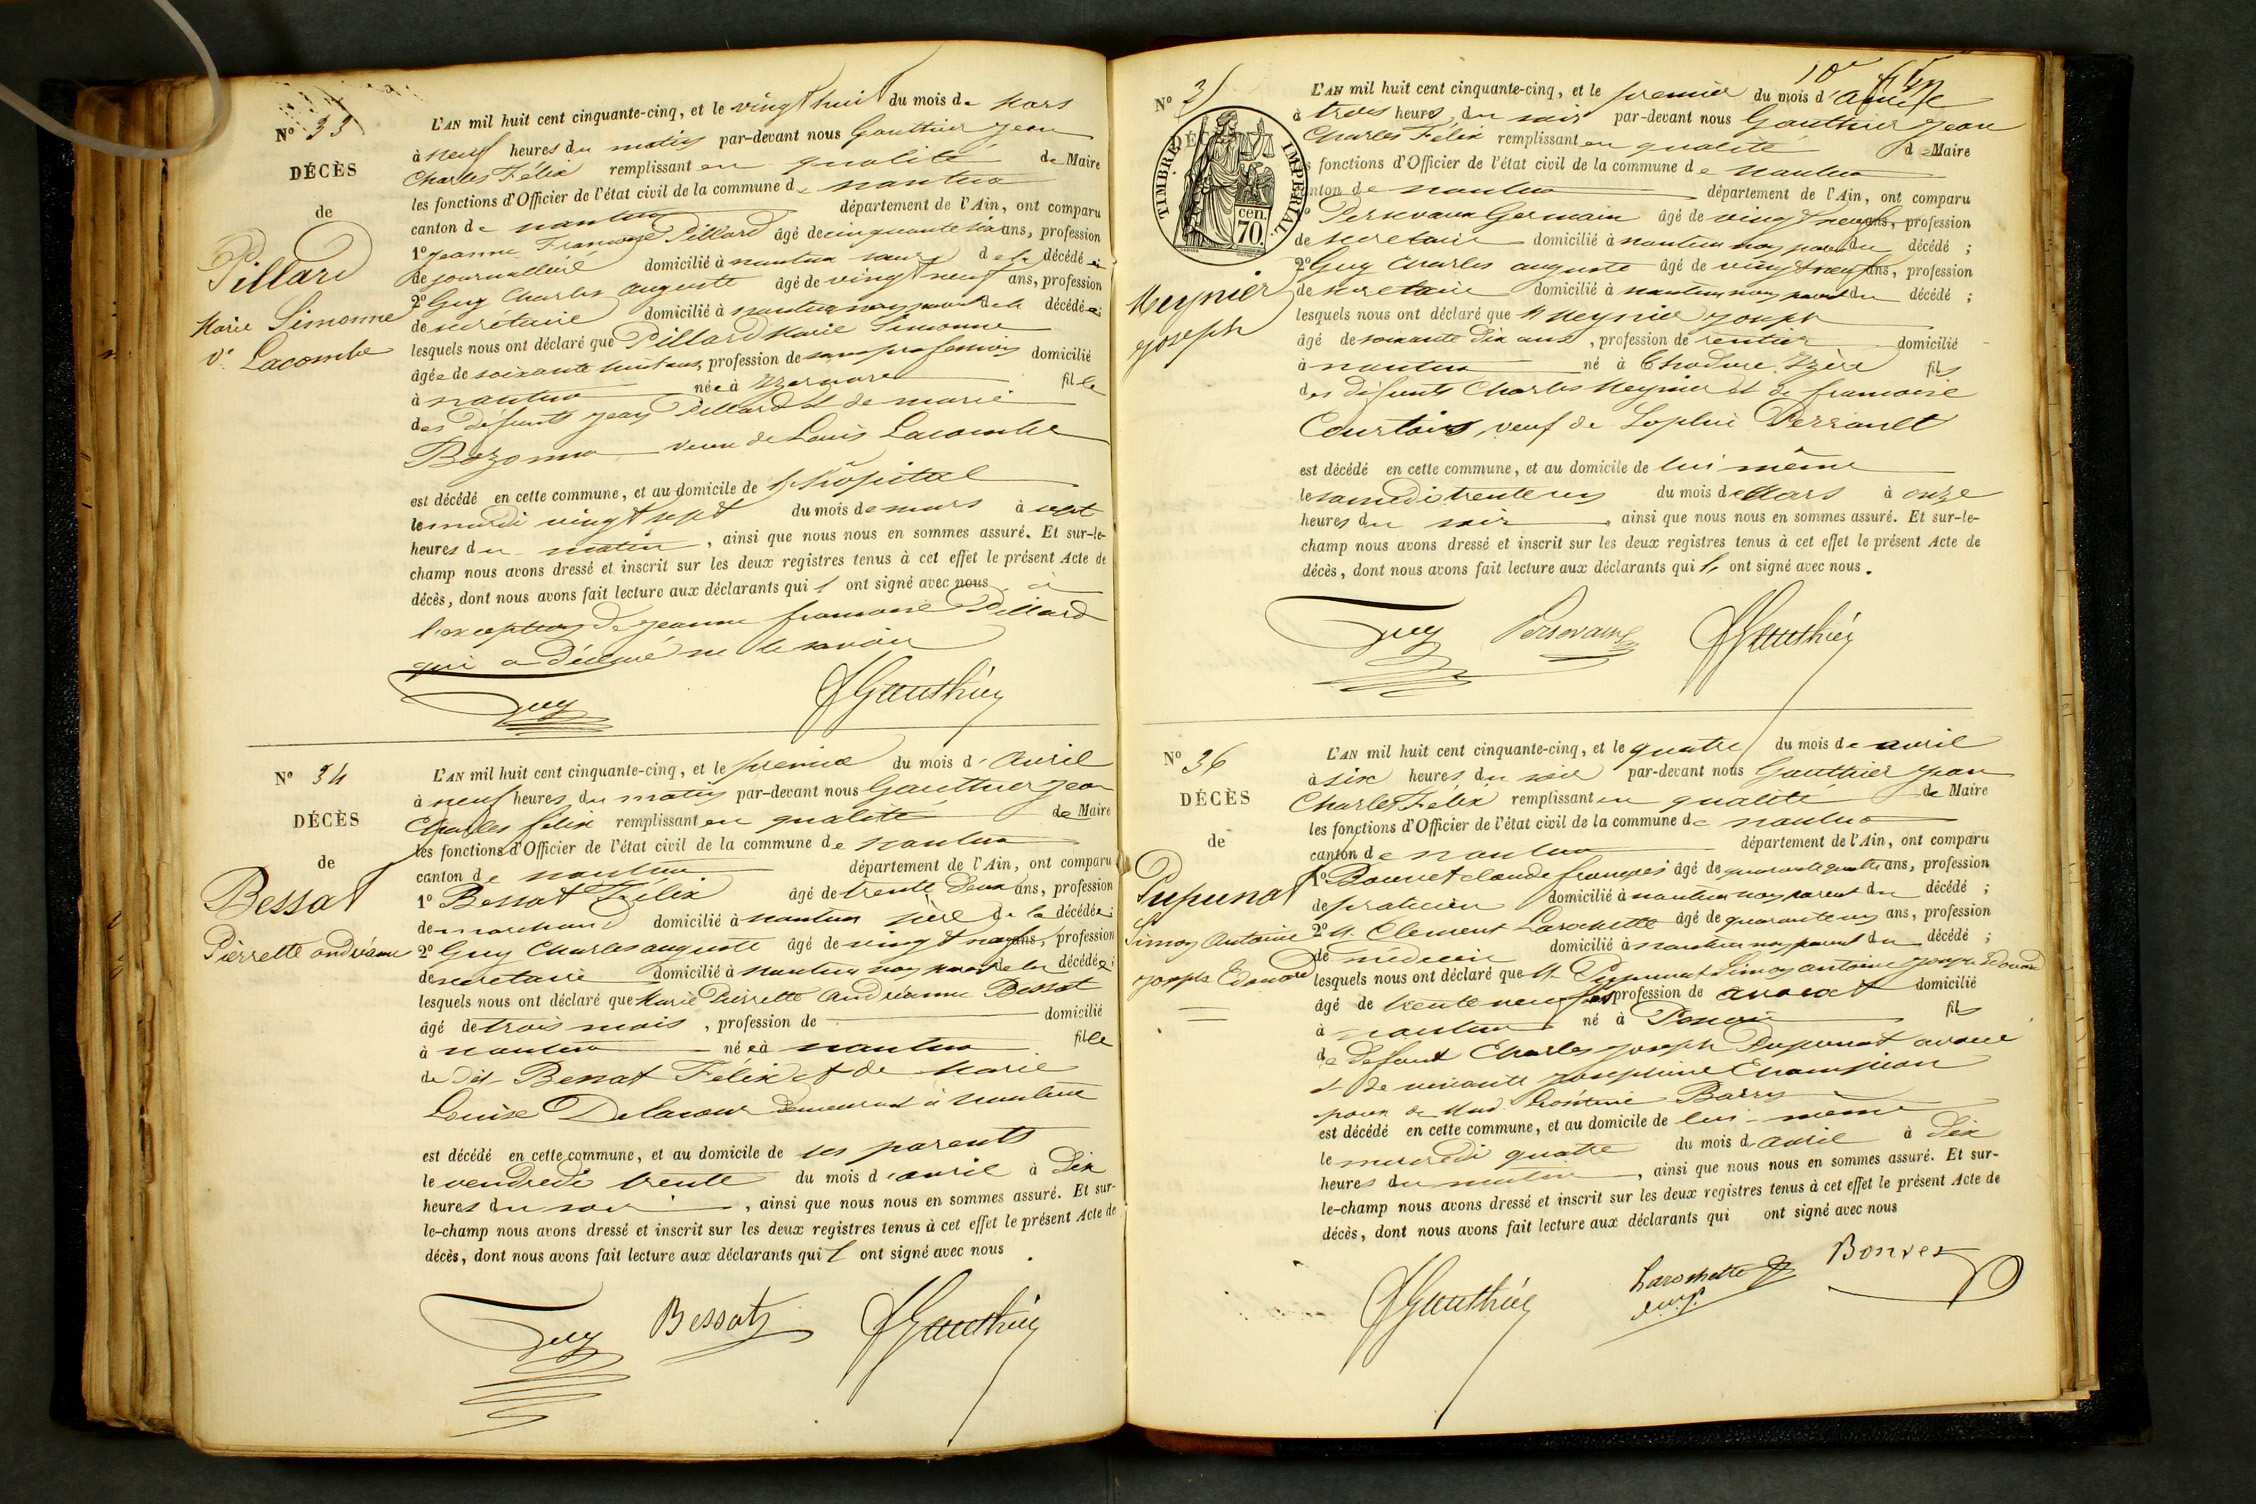 Nº 33
DÉCÈS
de
Pillard
Marie Simonne
Ve Lacombe
L'AN mil huit cent cinquante-cinq, et le vingt huit du mois de Mars
à neuf heures du matin par-devant nous Gauthier Jean
Charles Félix remplissant en qualité de Maire
les fonctions d'Officier de l'état civil de la commune de nantua
canton de nantua département de l'Ain, ont comparu
1º Jeanne Françoise Pillard âgé de cinquante six ans, profession
de journalière domicilié à nantua sœur de la décédée
2º Guy Charles auguste âgé de vingt neuf ans, profession
de secrétaire domicilié à nantua non parent de la décédée;
lesquels nous ont déclaré que Pillard Marie Simonne
âgée de soixante huit ans, profession de sans profession domicilié
à nantua née à Izernore fille
des défunts Jean Pillard et de marie
Bozonno veuve de Louis Lacombe
est décédé en cette commune, et au domicile de l'hôpital
le mardi vingt sept du mois de mars à sept
heures du matin, ainsi que nous nous en sommes assuré. Et sur-le-
champ nous avons dressé et inscrit sur les deux registres tenus à cet effet le présent Acte de
décès, dont nous avons fait lecture aux déclarants qui l' ont signé avec nous à
l'exception de Jeanne francoise Pillard
qui a déclaré ne le savoir
Guy JGauthier
Nº 34
DÉCÈS
de
Bessat
Pierrette andréanne
L'AN mil huit cent cinquante-cinq, et le premier du mois d'Avril
à neuf heures du matin par-devant nous Gauthier Jean
Charles félix remplissant en qualité de Maire
les fonctions d'Officier de l'état civil de la commune de nantua
canton de nantua département de l'Ain, ont comparu
1º Bessat Félix âgé de trente deux ans, profession
de marchand domicilié à nantua père de la décédée;
2º Guy Charles auguste âgé de vingt neuf ans, profession
de secretaire domicilié à nantua non parent de la décédée;
lesquels nous ont déclaré que Marie Pierrette Andréanne Bessat
âgé de trois mois, profession de domicilié
à nantua née à nantua fille
de dit Bessat Félix et de Marie
Louise Delacour demeurant à nantua
est décédé en cette commune, et au domicile de ses parents
le vendredi trente du mois d'avril à dix
heures du soir, ainsi que nous nous en sommes assuré. Et sur-
le-champ nous avons dressé et inscrit sur les deux registres tenus à cet effet le présent Acte de
décès, dont nous avons fait lecture aux déclarants qui l' ont signé avec nous.
Guy Bessat JGauthier
Nº 35
TIMBRE IMPÉRIAL.
cen.
70.
Meynier
Joseph
10e
L'AN mil huit cent cinquante-cinq, et le premier du mois d'avril
à trois heures du soir par-devant nous Gauthier Jean
Charles Félix remplissant en qualité de Maire
fonctions d'Officier de l'état civil de la commune de nantua
canton de nantua département de l'Ain, ont comparu
Persevaux Germain âgé de vingt neuf ans, profession
de secretaire domicilié à nantua non parent du décédé;
2º Guy Charles auguste âgé de vingt neuf ans, profession
de secretaire domicilié à nantua non parent du décédé;
lesquels nous ont déclaré que M Meynier Joseph
âgé de soixante dix ans, profession de rentier domicilié
à nantua né à Isère fils
des défunts Charles Meynier et de francoise
Courtois, veuf de Sophie Perrault
est décédé en cette commune, et au domicile de lui même
le samedi trente un du mois de Mars à onze
heures du soir, ainsi que nous nous en sommes assuré. Et sur-le-
champ nous avons dressé et inscrit sur les deux registres tenus à cet effet le présent Acte de
décès, dont nous avons fait lecture aux déclarants qui l' ont signé avec nous.
Guy Persevaux JGauthier
Nº 36
DÉCÈS
de
Pupunat
Simon Antoine
Joseph Edouard
L'AN mil huit cent cinquante-cinq, et le quatre du mois de avril
à six heures du soir par-devant nous Gauthier Jean
Charles Félix remplissant en qualité de Maire
les fonctions d'Officier de l'état civil de la commune de nantua
canton de nantua département de l'Ain, ont comparu
1º Bouvet claude françois âgé de quarante quatre ans, profession
de praticien domicilié à nantua non parent du décédé;
2º M. Clement Larochette âgé de quarante un ans, profession
de médecin domicilié à nantua non parent du décédé;
lesquels nous ont déclaré que M. Pupunat Simon antoine Joseph Edouard
âgé de trente neuf ans profession de avocat domicilié
à nantua né à fils
de defunt Charles Joseph Pupunat avoué
et de vivante Josephine Champion
epoux de Mad. Barry
est décédé en cette commune, et au domicile de lui-meme
le mercredi quatre du mois d'avril à dix
heures du matin, ainsi que nous nous en sommes assuré. Et sur-
le-champ nous avons dressé et inscrit sur les deux registres tenus à cet effet le présent Acte de
décès, dont nous avons fait lecture aux déclarants qui ont signé avec nous
JGauthier Larochette Bouvet